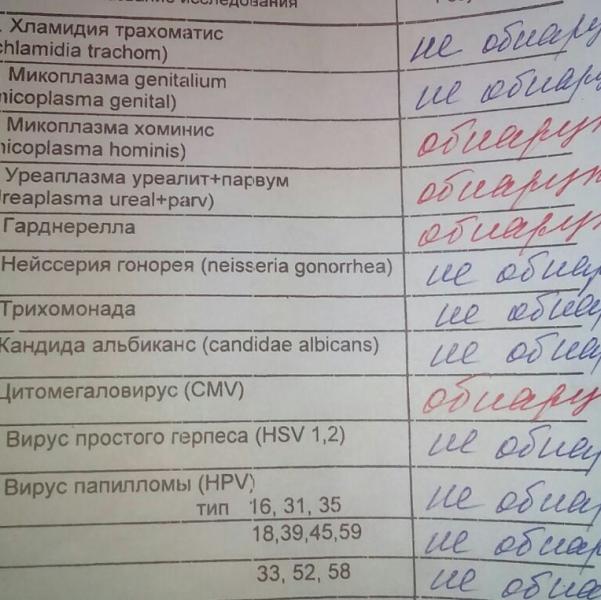 исследования
. Хламидия трахоматис не обнару
chlamidia trachom)
Микоплазма genitalium не обнару
micoplasma genital)
Микоплазма хоминис обнаруж
micoplasma hominis)
Уреаплазма уреалит+парвум обнаруж
Ureaplasma ureal+parv)
Гарднерелла обнаруж
Нейссерия гонорея (neisseria gonorrhea) не обнар
Трихомонада не обнар
Кандида альбиканс (candidae albicans) не обнар
Цитомегаловирус (CMV) обнару
Вирус простого герпеса (HSV 1,2) не обнар
Вирус папилломы (HPV)
тип 16, 31, 35 не обнар
18,39,45,59 не обнар
33, 52, 58 не обна